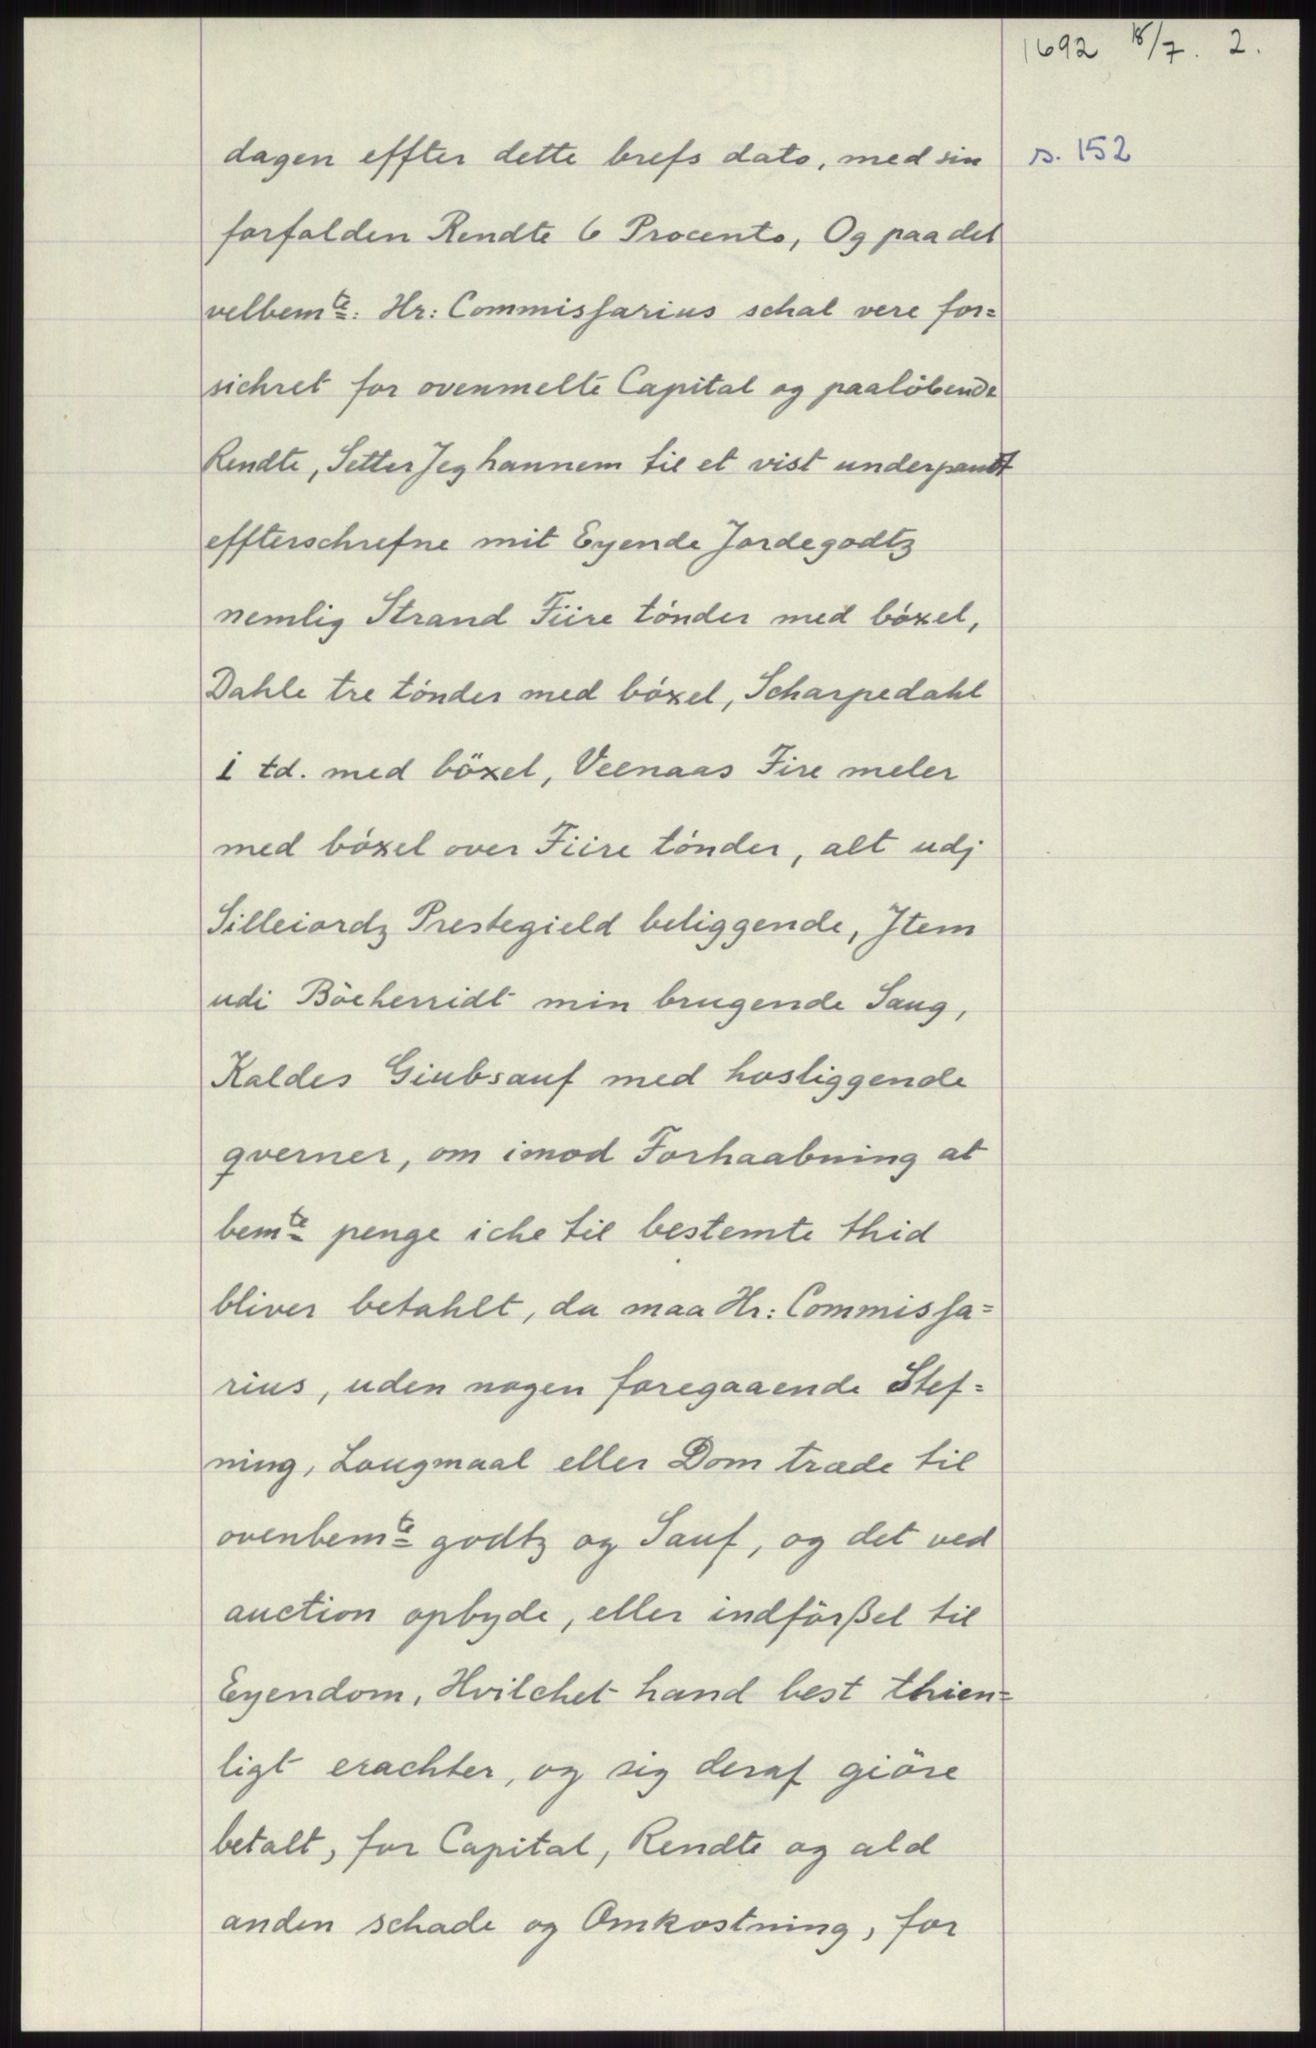 1692 18/7. 2.
dagen effter dette brefs dato, med sin
s. 152
forfalden Rendte 6 Procento, Og paa det
velbemte: Hr: Commisſarius schal vere for=
sichret for ovenmelte Capital og paalöbende
Rendte, Setter Jeg hannem til et vist underpandt
effterschrefne mit Eyende Jordegodtz
nemlig Strand Fiire tónder med bóxel,
Dahle tre tónder med bóxel, Scharpedahl
i td. med böxel, Veenaas Fire meler
med bóxel over Fiire tónder, alt udj
Silleiordz Prestegield beliggende, Jtem
udi Böeherridt min brugende Saug,
Kaldes Giubsauf med hosliggende
qverner, om imod Forhaabning at
bemte penge iche til bestemte thid
bliver betahlt, da maa Hr: Commisſa=
rius, uden nogen foregaaende Stef=
ning, Laugmaal eller Dom træde til
ovenbemte godtz og Sauf, og det ved
auction opbyde, eller indförßel til
Eyendom, Hvilchet hand best thien=
ligt erachter, og sig deraf giöre
betalt, for Capital, Rendte og ald
anden schade og Omkostning, for